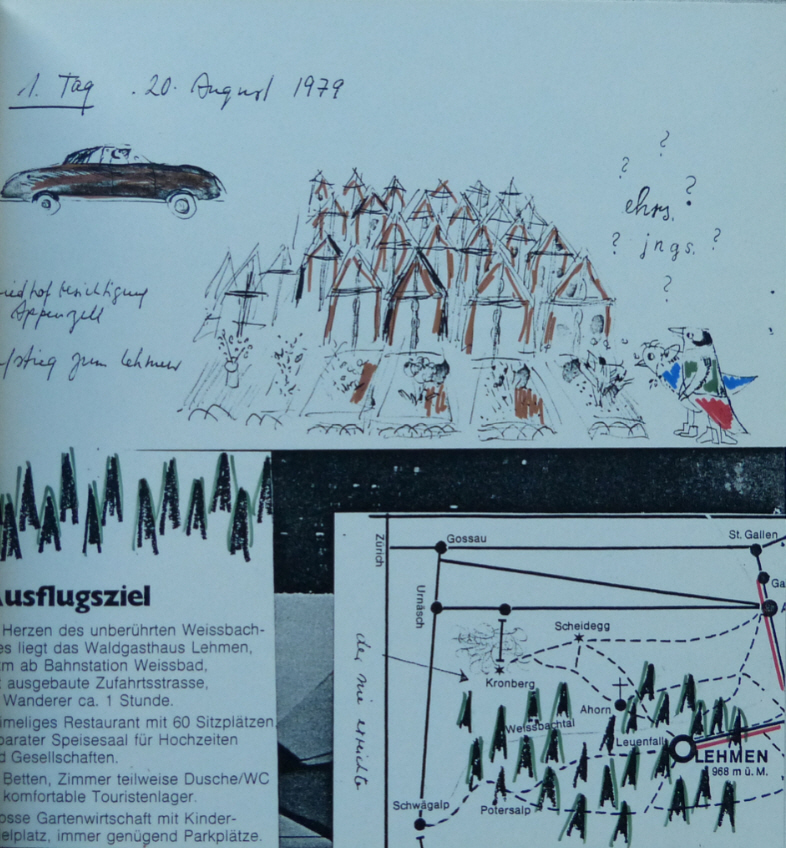 1. Tag . 20. August 1979
?
? ?
ehrs.
? jngs. ?
?
Appenzell
zum Lehmen
Ausflugsziel
Herzen des unberührten Weissbach-
es liegt das Waldgasthaus Lehmen,
m ab Bahnstation Weissbad,
t ausgebaute Zufahrtsstrasse,
Wanderer ca. 1 Stunde.
imeliges Restaurant mit 60 Sitzplätzen
parater Speisesaal für Hochzeiten
d Gesellschaften.
Betten, Zimmer teilweise Dusche/WC
komfortable Touristenlager.
osse Gartenwirtschaft mit Kinder-
elplatz, immer genügend Parkplätze.
Zürich
Gossau
St. Gallen
Ga
A
Urnäsch
Scheidegg
der nie erreichte
Kronberg
Ahorn
Weissbachtal
Leuenfall
LEHMEN
968 m ü. M.
Schwägalp
Potersalp